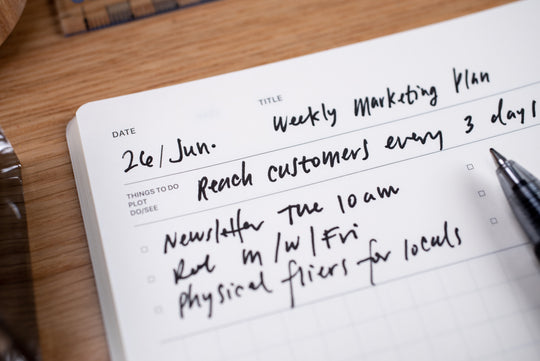 DATE
TITLE
26/Jun.
Weekly Marketing Plan
THINGS TO DO
PLOT
DO/SEE
Reach customers every 3 days
Newsletter Tue 10am
M/W/Fri
Physical fliers for locals